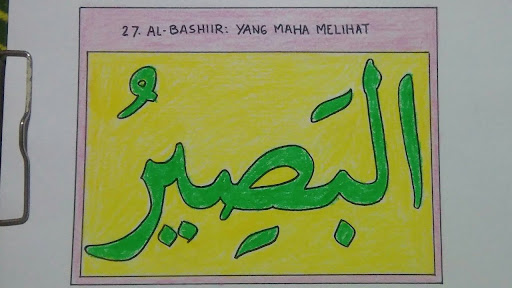 27. AL-BASHIIR: YANG MAHA MELIHAT
الْبَصِيْرُ